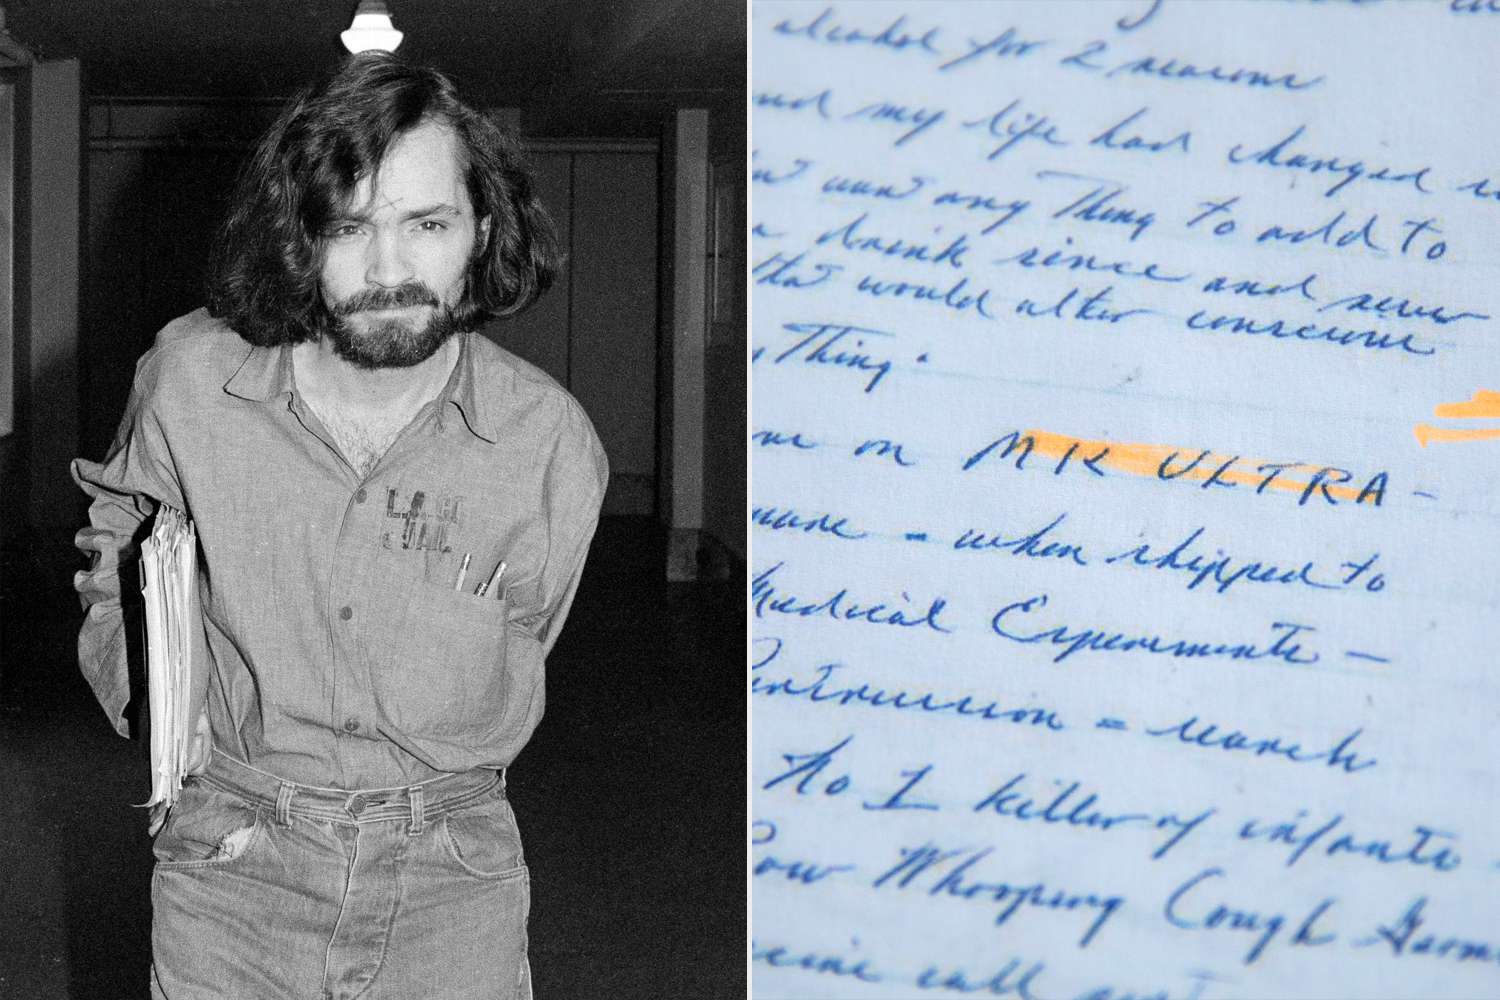 L.A. CO
JAIL
alcohol for 2 reasons
and my life had changed
want any Thing to add to
drink since and never
that would alter conscious
Thing.
on MK ULTRA -
when shipped to
Medical Experiments -
search
No 1 killer of infants
Whooping Cough
call